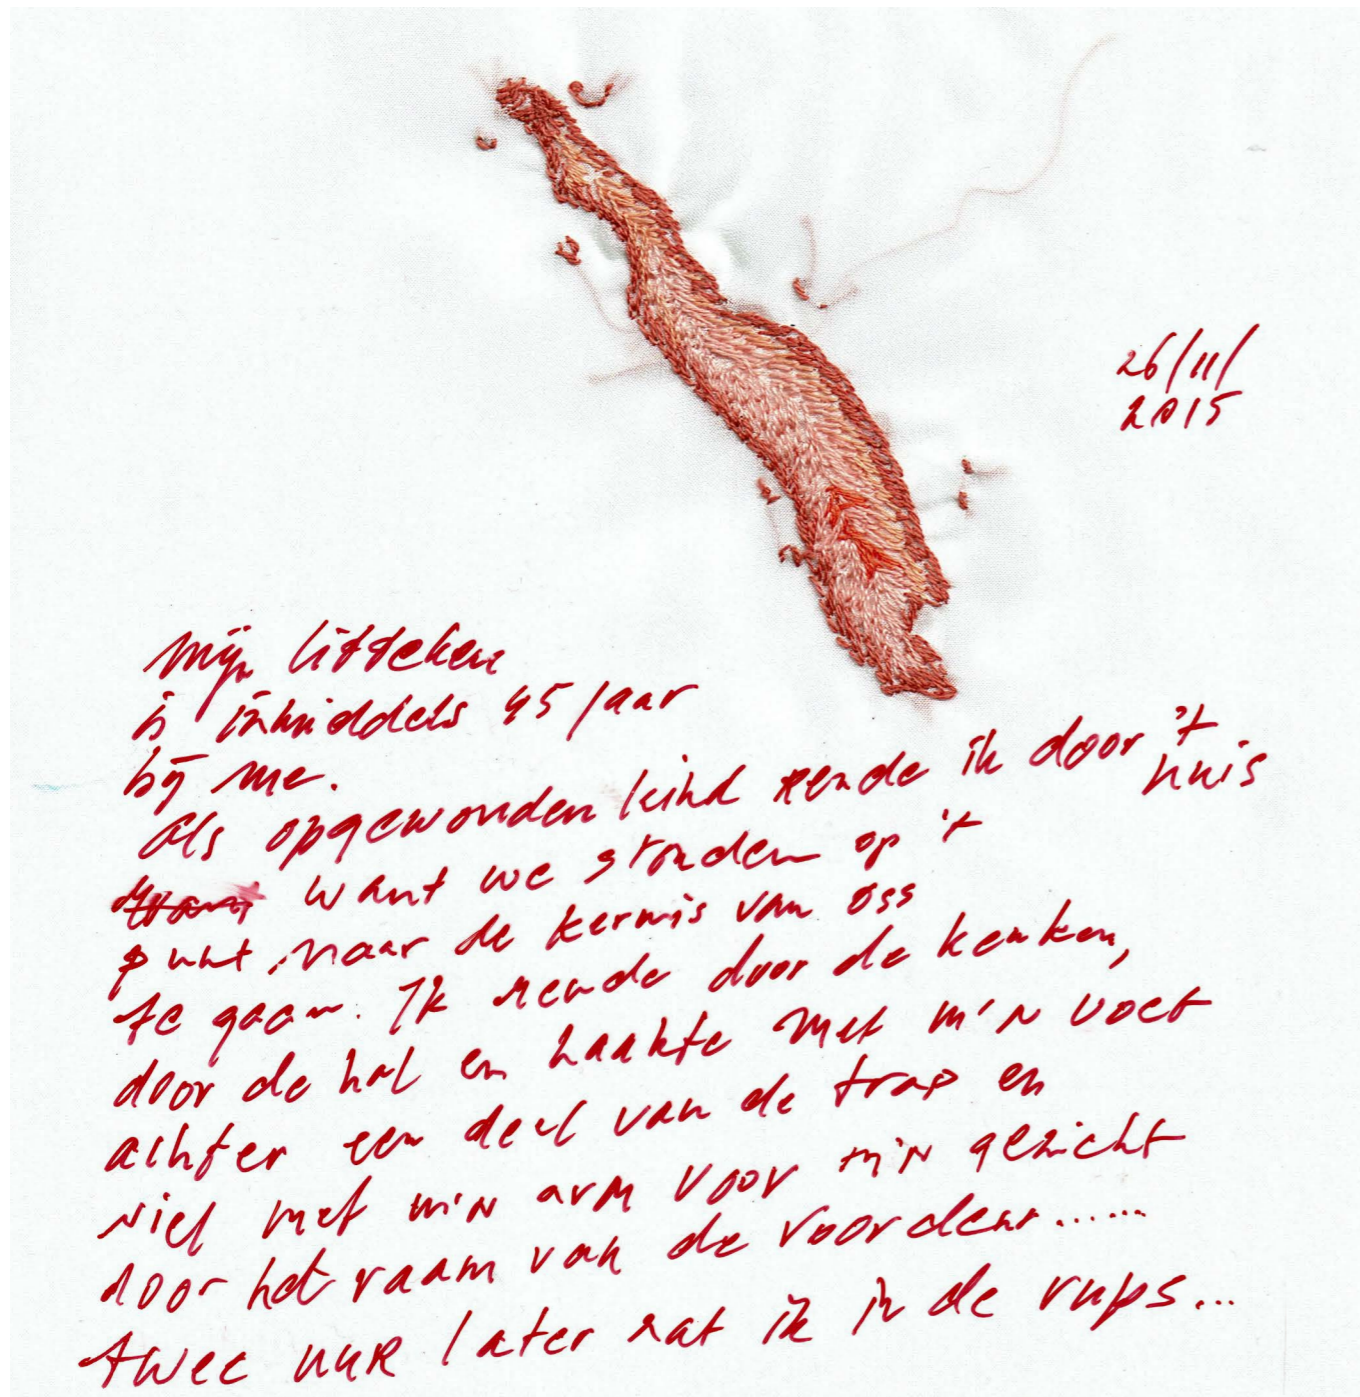 26/11/
2015
Mijn litteken
is inmiddels 45 jaar
bij me.
Als opgewonden kind rende ik door 't
huis
want we stonden op 't
punt, naar de kermis van Oss
te gaan. Ik rende door de keuken,
door de hal en haakte met m'n voet
achter een deel van de trap en
viel met m'n arm voor m'n gezicht
door het raam van de voordeur......
twee uur later zat ik in de rups...